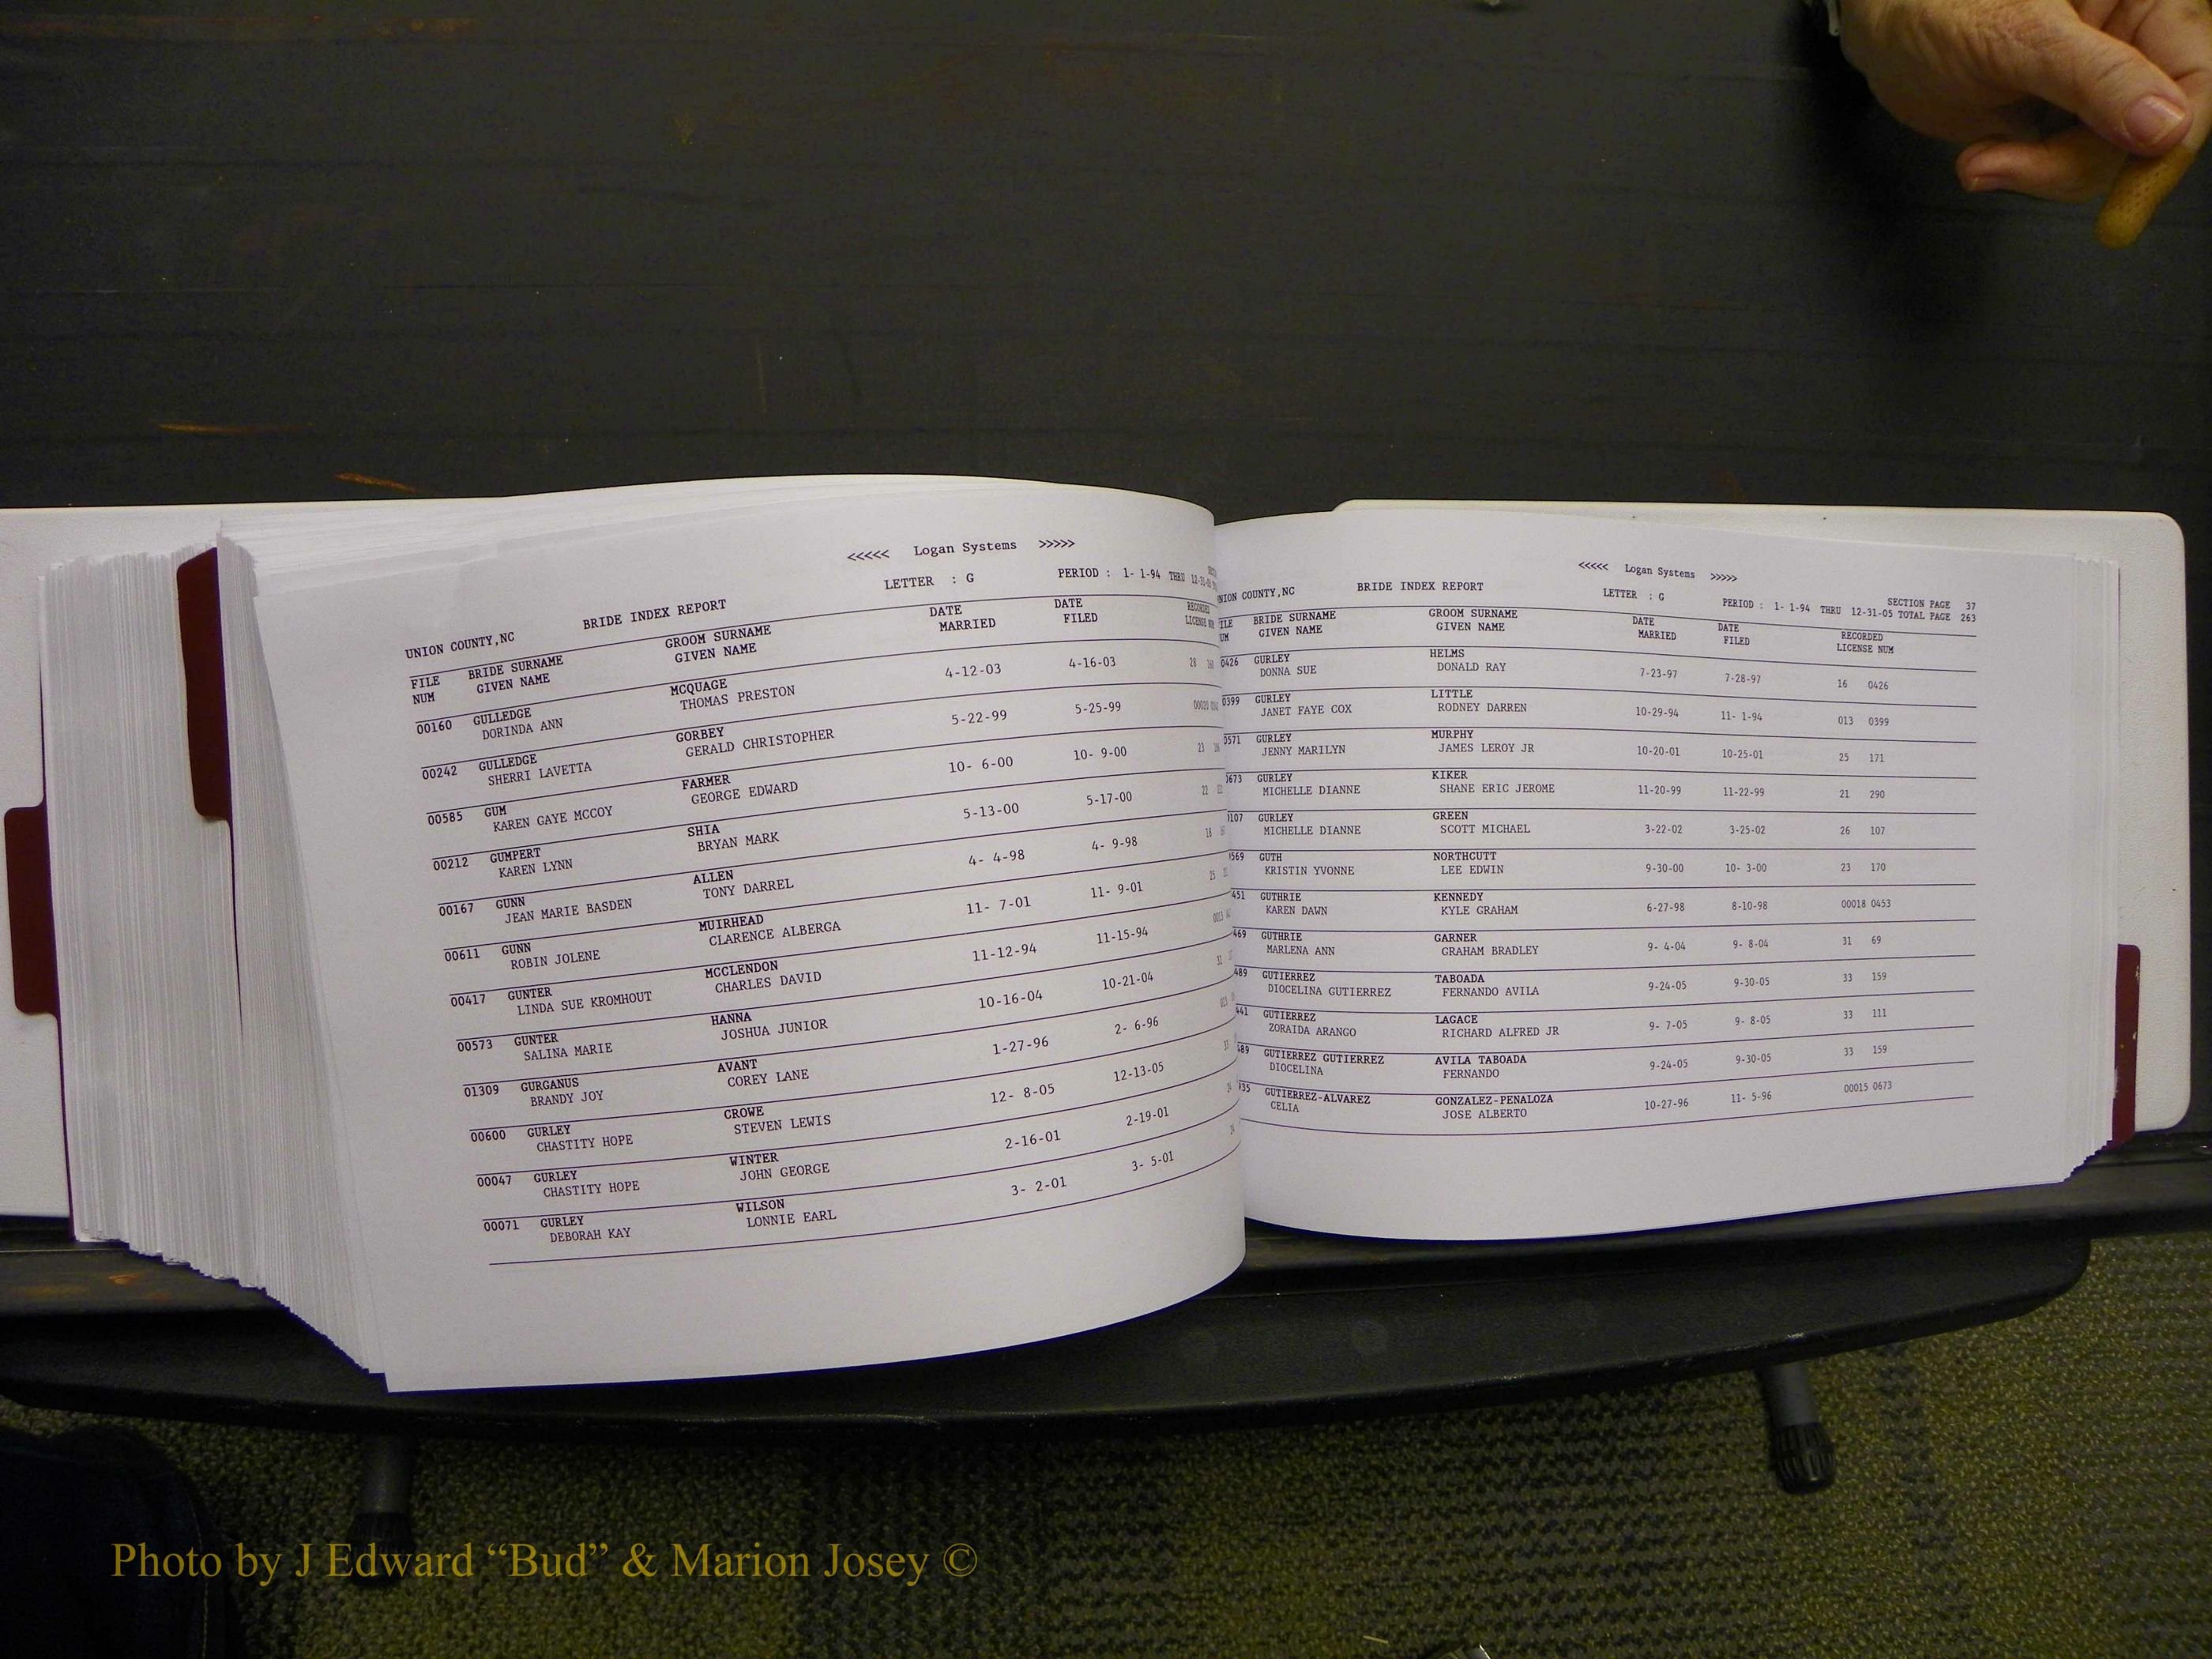 <<<<< Logan Systems >>>>>
LETTER : G
PERIOD : 1- 1-94 THRU
UNION COUNTY,NC BRIDE INDEX REPORT
FILE BRIDE SURNAME GROOM SURNAME DATE DATE RECORDED
NUM GIVEN NAME GIVEN NAME MARRIED FILED LICENSE
00160 GULLEDGE MCQUAGE 4-12-03 4-16-03 28
DORINDA ANN THOMAS PRESTON
00242 GULLEDGE GORBEY 5-22-99 5-25-99
SHERRI LAVETTA GERALD CHRISTOPHER
00585 GUM FARMER 10- 6-00 10- 9-00 23
KAREN GAYE MCCOY GEORGE EDWARD
00212 GUMPERT SHIA 5-13-00 5-17-00 22
KAREN LYNN BRYAN MARK
00167 GUNN ALLEN 4- 4-98 4- 9-98 18
JEAN MARIE BASDEN TONY DARREL
00611 GUNN MUIRHEAD 11- 7-01 11- 9-01 25
ROBIN JOLENE CLARENCE ALBERGA
00417 GUNTER MCCLENDON 11-12-94 11-15-94
LINDA SUE KROMHOUT CHARLES DAVID
00573 GUNTER HANNA 10-16-04 10-21-04
SALINA MARIE JOSHUA JUNIOR
01309 GURGANUS AVANT 1-27-96 2- 6-96
BRANDY JOY COREY LANE
00600 GURLEY CROWE 12- 8-05 12-13-05
CHASTITY HOPE STEVEN LEWIS
00047 GURLEY WINTER 2-16-01 2-19-01
CHASTITY HOPE JOHN GEORGE
00071 GURLEY WILSON 3- 2-01 3- 5-01
DEBORAH KAY LONNIE EARL
<<<<< Logan Systems >>>>>
NION COUNTY,NC BRIDE INDEX REPORT LETTER : G SECTION PAGE 37
PERIOD : 1- 1-94 THRU 12-31-05 TOTAL PAGE 263
ILE BRIDE SURNAME GROOM SURNAME DATE DATE RECORDED
UM GIVEN NAME GIVEN NAME MARRIED FILED LICENSE NUM
0426 GURLEY HELMS 7-23-97 7-28-97 16 0426
DONNA SUE DONALD RAY
0399 GURLEY LITTLE 10-29-94 11- 1-94 013 0399
JANET FAYE COX RODNEY DARREN
0571 GURLEY MURPHY 10-20-01 10-25-01 25 171
JENNY MARILYN JAMES LEROY JR
673 GURLEY KIKER 11-20-99 11-22-99 21 290
MICHELLE DIANNE SHANE ERIC JEROME
107 GURLEY GREEN 3-22-02 3-25-02 26 107
MICHELLE DIANNE SCOTT MICHAEL
569 GUTH NORTHCUTT 9-30-00 10- 3-00 23 170
KRISTIN YVONNE LEE EDWIN
451 GUTHRIE KENNEDY 6-27-98 8-10-98 00018 0453
KAREN DAWN KYLE GRAHAM
469 GUTHRIE GARNER 9- 4-04 9- 8-04 31 69
MARLENA ANN GRAHAM BRADLEY
489 GUTIERREZ TABOADA 9-24-05 9-30-05 33 159
DIOCELINA GUTIERREZ FERNANDO AVILA
441 GUTIERREZ LAGACE 9- 7-05 9- 8-05 33 111
ZORAIDA ARANGO RICHARD ALFRED JR
489 GUTIERREZ GUTIERREZ AVILA TABOADA 9-24-05 9-30-05 33 159
DIOCELINA FERNANDO
935 GUTIERREZ-ALVAREZ GONZALEZ-PENALOZA 10-27-96 11- 5-96 00015 0673
CELIA JOSE ALBERTO
Photo by J Edward “Bud” & Marion Josey ©